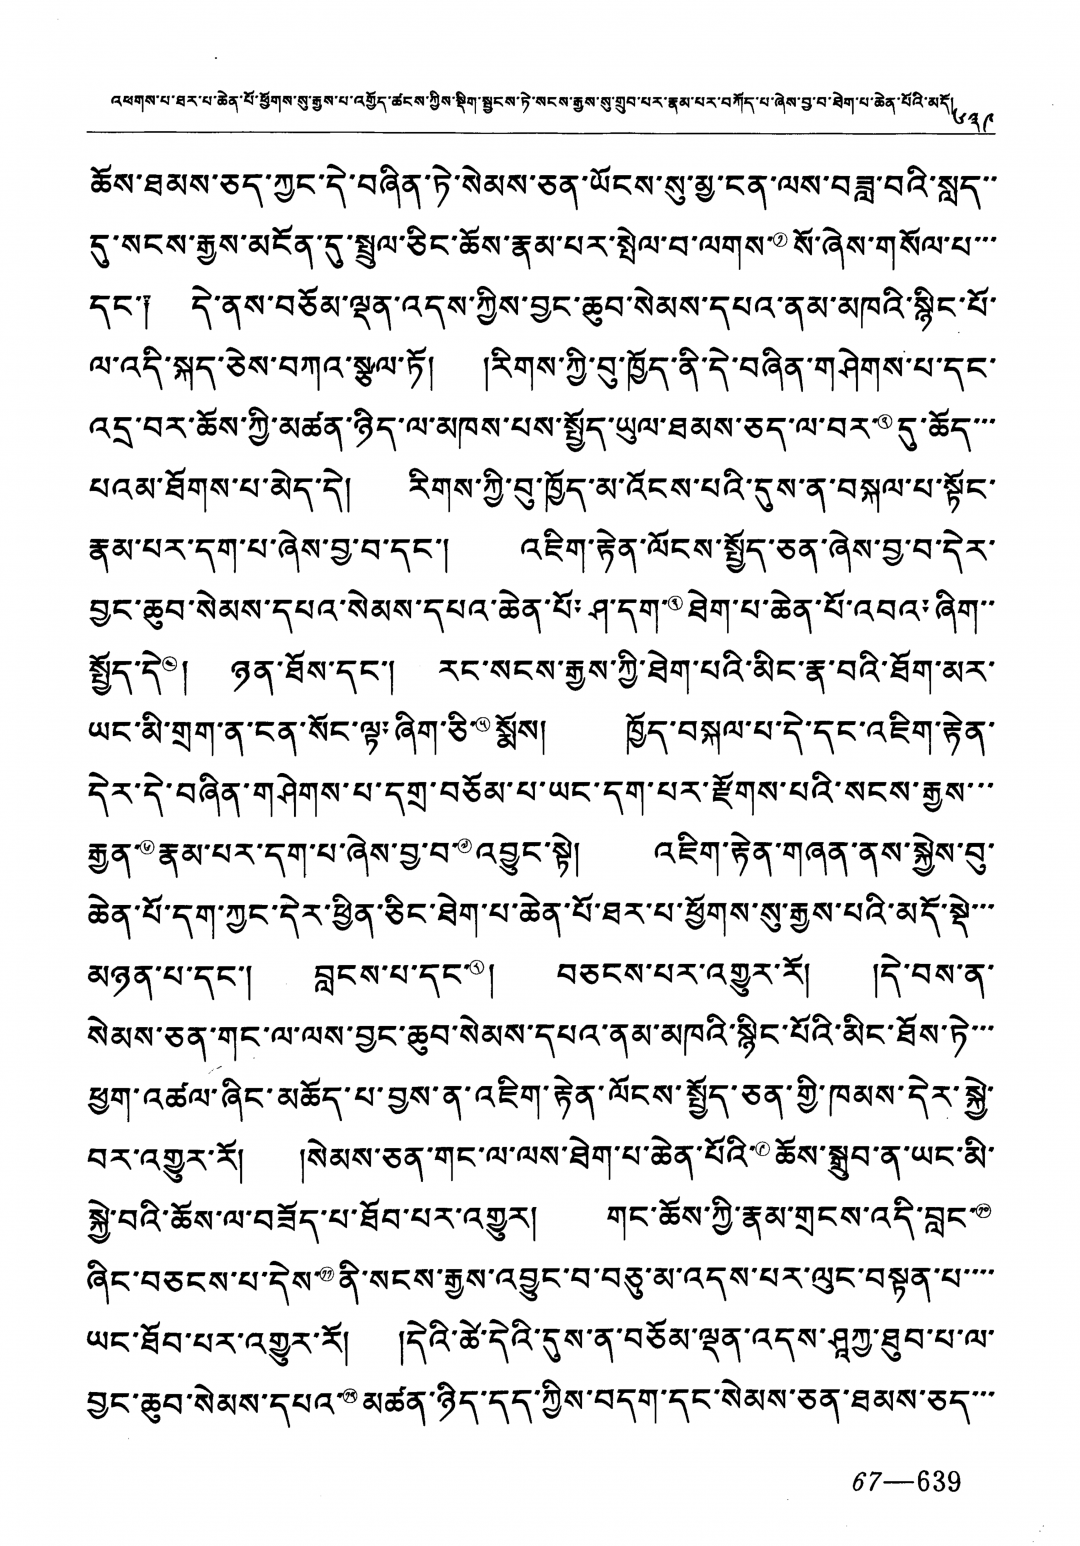 འཕགས་པ་ཐར་པ་ཆེན་པོ་ཕྱོགས་སུ་རྒྱས་པ་འགྱོད་ཚངས་ཀྱིས་སྡིག་སྦྱངས་ཏེ་སངས་རྒྱས་སུ་གྲུབ་པར་རྣམ་པར་བཀོད་པ་ཞེས་བྱ་བ་ཐེག་པ་ཆེན་པོའི་མདོ། ༦༣༩
ཆོས་ཐམས་ཅད་ཀྱང་དེ་བཞིན་ཏེ་སེམས་ཅན་ཡོངས་སུ་མྱ་ངན་ལས་བཟླ་བའི་སླད་
དུ་སངས་རྒྱས་མངོན་དུ་སྤྲུལ་ཅིང་ཆོས་རྣམ་པར་སྤེལ་བ་ལགས་① སོ་ཞེས་གསོལ་པ་
དང་༑ དེ་ནས་བཅོམ་ལྡན་འདས་ཀྱིས་བྱང་ཆུབ་སེམས་དཔའ་ནམ་མཁའི་སྙིང་པོ་
ལ་འདི་སྐད་ཅེས་བཀའ་སྩལ་ཏོ། །རིགས་ཀྱི་བུ་ཁྱོད་ནི་དེ་བཞིན་གཤེགས་པ་དང་
འདྲ་བར་ཆོས་ཀྱི་མཚན་ཉིད་ལ་མཁས་པས་སྤྱོད་ཡུལ་ཐམས་ཅད་ལ་བར་② དུ་ཆོད་
པའམ་ཐོགས་པ་མེད་དེ། རིགས་ཀྱི་བུ་ཁྱོད་མ་འོངས་པའི་དུས་ན་བསྐལ་པ་སྟོང་
རྣམ་པར་དག་པ་ཞེས་བྱ་བ་དང་། འཇིག་རྟེན་ལོངས་སྤྱོད་ཅན་ཞེས་བྱ་བ་དེར་
བྱང་ཆུབ་སེམས་དཔའ་སེམས་དཔའ་ཆེན་པོ་ཤ་དག་③ ཐེག་པ་ཆེན་པོ་འབའ་ཞིག་
སྤྱོད་དེ④། ཉན་ཐོས་དང་། རང་སངས་རྒྱས་ཀྱི་ཐེག་པའི་མིང་རྣ་བའི་ཐོག་མར་
ཡང་མི་གྲག་ན་ངན་སོང་ལྟ་ཞིག་ཅི་⑤ སྨོས། ཁྱོད་བསྐལ་པ་དེ་དང་འཇིག་རྟེན་
དེར་དེ་བཞིན་གཤེགས་པ་དགྲ་བཅོམ་པ་ཡང་དག་པར་རྫོགས་པའི་སངས་རྒྱས་
རྒྱན་⑥ རྣམ་པར་དག་པ་ཞེས་བྱ་བ་⑦ འབྱུང་སྟེ། འཇིག་རྟེན་གཞན་ནས་སྐྱེས་བུ་
ཆེན་པོ་དག་ཀྱང་དེར་ཕྱིན་ཅིང་ཐེག་པ་ཆེན་པོ་ཐར་པ་ཕྱོགས་སུ་རྒྱས་པའི་མདོ་སྡེ་
མཉན་པ་དང་། བླངས་པ་དང་⑧། བཅངས་པར་འགྱུར་རོ། །དེ་བས་ན་
སེམས་ཅན་གང་ལ་ལས་བྱང་ཆུབ་སེམས་དཔའ་ནམ་མཁའི་སྙིང་པོའི་མིང་ཐོས་ཏེ་
ཕྱག་འཚལ་ཞིང་མཆོད་པ་བྱས་ན་འཇིག་རྟེན་ལོངས་སྤྱོད་ཅན་གྱི་ཁམས་དེར་སྐྱེ་
བར་འགྱུར་རོ། །སེམས་ཅན་གང་ལ་ལས་ཐེག་པ་ཆེན་པོའི་⑨ ཆོས་སྒྲུབ་ན་ཡང་མི་
སྐྱེ་བའི་ཆོས་ལ་བཟོད་པ་ཐོབ་པར་འགྱུར། གང་ཆོས་ཀྱི་རྣམ་གྲངས་འདི་བླང་⑩
ཞིང་བཅངས་པ་དེས་⑪ ནི་སངས་རྒྱས་འབྱུང་བ་བཅུ་མ་འདས་པར་ལུང་བསྟན་པ་
ཡང་ཐོབ་པར་འགྱུར་རོ། །དེའི་ཚེ་དེའི་དུས་ན་བཅོམ་ལྡན་འདས་ཤཱཀྱ་ཐུབ་པ་ལ་
བྱང་ཆུབ་སེམས་དཔའ་⑫ མཚན་ཉིད་དད་ཀྱིས་བདག་དང་སེམས་ཅན་ཐམས་ཅད་
67—639